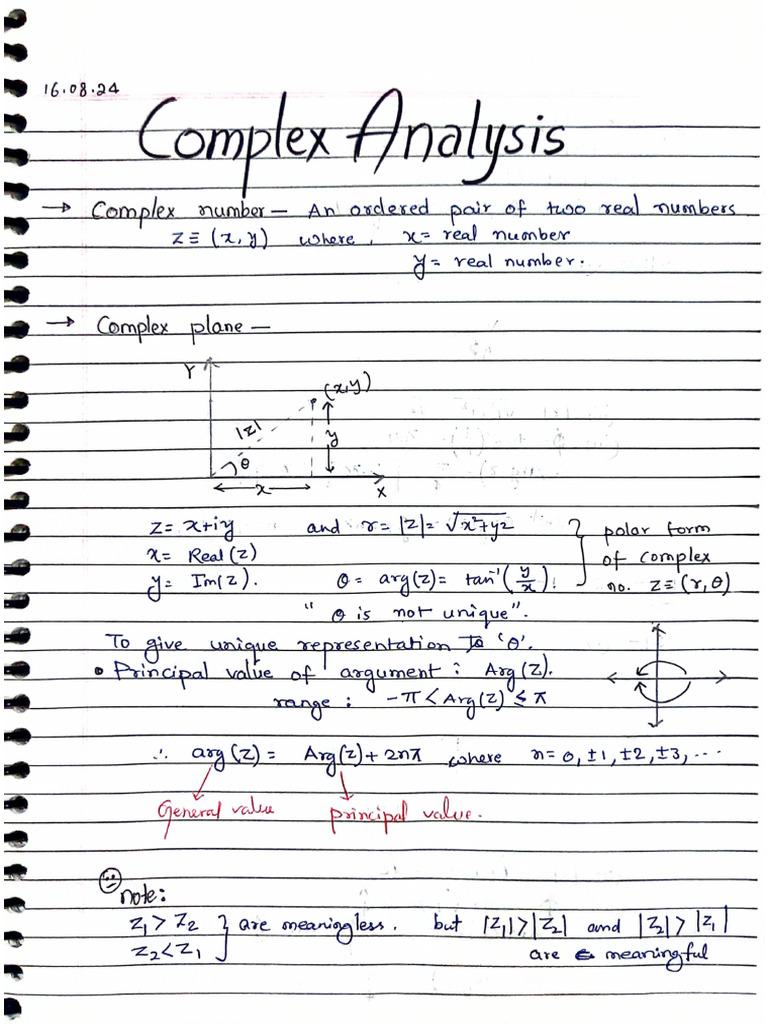 16.08.24
Complex Analysis
→ Complex number – An ordered pair of two real numbers
z ≡ (x, y) where, x = real number
y = real number.
→ Complex plane –
Y
(x,y)
|z|
y
θ
x
X
z = x+iy and r = |z| = √x²+y² } polar form
x = Real(z) of complex
y = Im(z). θ = arg(z) = tan⁻¹(y/x). no. z ≡ (r, θ)
" θ is not unique".
To give unique representation to 'θ'.
• Principal value of argument : Arg(z).
range : -π < Arg(z) ≤ π
∴ arg(z) = Arg(z) + 2nπ where n = 0, ±1, ±2, ±3, ...
General value principal value.
note:
z₁ > z₂ } are meaningless. but |z₁| > |z₂| and |z₂| > |z₁|
z₂ < z₁ are meaningful